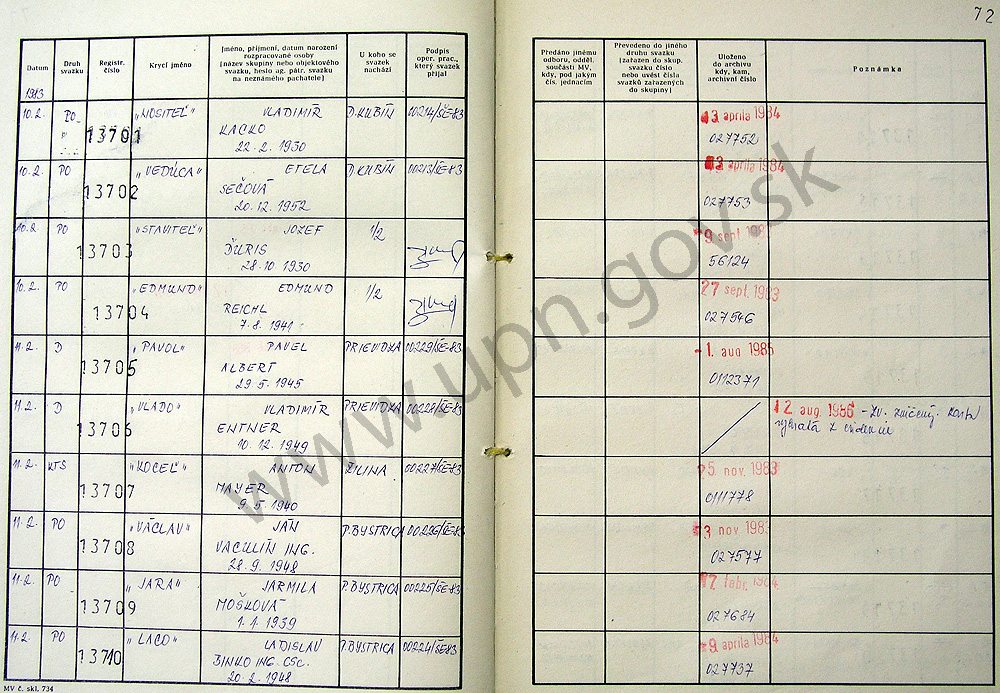 72
Datum
Druh svazku
Registr. číslo
Krycí jméno
Jméno, příjmení, datum narození rozpracované osoby (název skupiny nebo objektového svazku, heslo ag. pátr. svazku na neznámého pachatele)
U koho se svazek nachází
Podpis oper. prac., který svazek přijal
Předáno jinému odboru, odděl. součásti MV, kdy, pod jakým čís. jednacím
Převedeno do jiného druhu svazku (zařazen do skup. svazku číslo nebo uvést čísla svazků zařazených do skupiny)
Uloženo do archivu kdy, kam, archivní číslo
Poznámka
1983
10.2. PO 13701 „NOSITEĽ" VLADIMÍR D.KUBÍN 00214/ŠE-83 13 aprila 1984
KACKO 027752
22. 2. 1930
10.2. PO 13702 „VEDÚCA" ETELA D.KUBÍN 00213/ŠE-83 aprila 1984
SEČOVÁ 027753
20. 12. 1952
10.2. PO 13703 „STAVITEĽ" JOZEF 1/2 9 sept
ĎURIS 56124
28. 10 1930
10.2. PO 13704 „EDMUND" EDMUND 1/2 27 sept. 1983
REICHL 027546
7. 8. 1941
11.2. D 13705 „PAVOL" PAVEL PRIEVIDZA 00229/ŠE-83 -1. aug 1985
ALBERT 0112371
29. 5. 1945
11.2. D 13706 „VLADO" VLADIMÍR PRIEVIDZA 00228/ŠE-83 12 aug. 1986 - zv. zničený.
ENTNER z evidencie
10. 12. 1949
11.2. KTS 13707 „KOCEĽ" ANTON ŽILINA 00227/ŠE-83 5 nov. 1983
MAYER 0111778
9. 5. 1940
11.2. PO 13708 „VÁCLAV" JÁN P.BYSTRICA 00226/ŠE-83 3 nov 1983
VACULÍN ING. 027577
28. 9. 1948
11.2. PO 13709 „JARA" JARMILA P.BYSTRICA 00225/ŠE-83 17 febr. 1984
MOŠKOVÁ 027684
1. 1. 1939
11.2. PO 13710 „LACO" LADISLAV P.BYSTRICA 00224/ŠE83 9 aprila 1984
ING. CSc. 027737
20. 2. 1948
MV č. skl. 734
www.upn.gov.sk